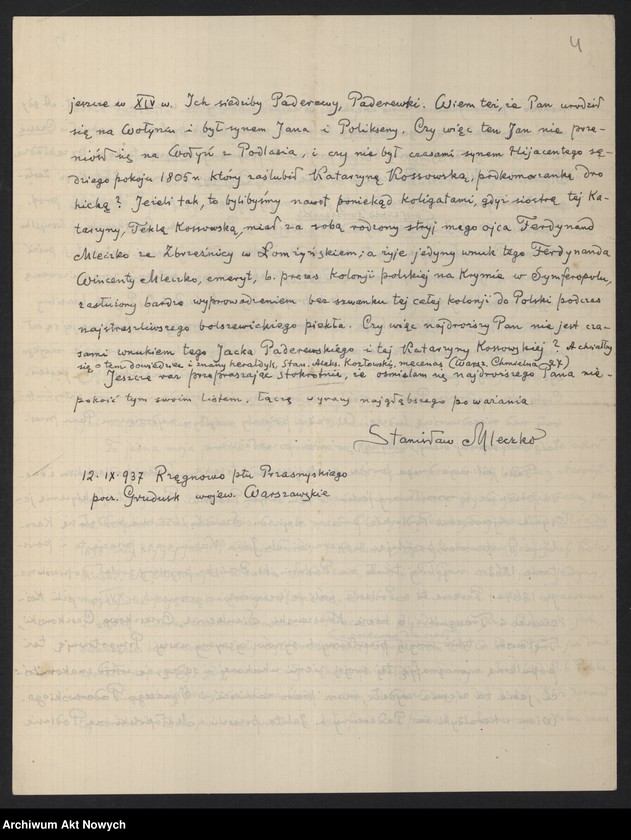 4
jeszcze w XIV w. Ich siedziby Paderewy, Paderewki. Wiem też, że Pan urodził
się na Wołyniu i był synem Jana i Polikseny. Czy więc ten Jan nie prze-
niósł się na Wołyń z Podlasia, i czy nie był czasami synem Hijacentego sę-
dziego pokoju 1805 r. który zaślubił Katarzynę Kossowską, podkomorzankę dro
hicką? Jeżeli tak, to bylibyśmy nawet poniekąd koligatami, gdyż siostrę tej Ka-
tarzyny, Teklę Kossowską, miał za sobą rodzony stryj mego ojca Ferdynand
Mleczko ze Zbrzeźnicy w Łomżyńskiem; a żyje jedyny wnuk tego Ferdynanda
Wincenty Mleczko, emeryt, b. prezes Kolonji polskiej na Krymie w Symferopolu,
zasłużony bardzo wyprowadzeniem bez szwanku tej całej kolonji do Polski podczas
najstraszliwszego bolszewickiego piekła. Czy więc najdroższy Pan nie jest cza-
sami wnukiem tego Jacka Paderewskiego i tej Katarzyny Kossowskiej? A chciałby
się o tem dowiedzieć i znany heraldyk, Stan. Aleks. Kozłowski, mecenas (Warsz. Chmielna 27)
Jeszcze raz przepraszając stokrotnie, że ośmielam się najdroższego Pana nie-
pokoić tym swoim listem, łączę wyrazy najgłębszego poważania
Stanisław Mleczko
12. IX. 937 Rzęgnowo ptu Przasnyskiego
pocz. Grudusk wojew. Warszawskie
Archiwum Akt Nowych